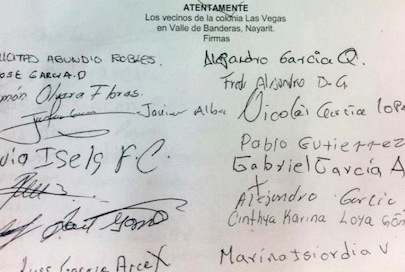 ATENTAMENTE
Los vecinos de la colonia Las Vegas
en Valle de Banderas, Nayarit.
Firmas
LICITAD ABUNDIO ROBLES.
JOSE GARCIA.D
món Olvera Flores.
Javier Alba
Isela F.C.
Luis Garcia Arce
Alejandro Garcia Q.
Fred Alejandro D.G.
Nicolás Garcia lope
Pablo Gutierrez
Gabriel García A
Alejandro Garcia
Cinthya Karina Loya Góm
Marina Isiordia V